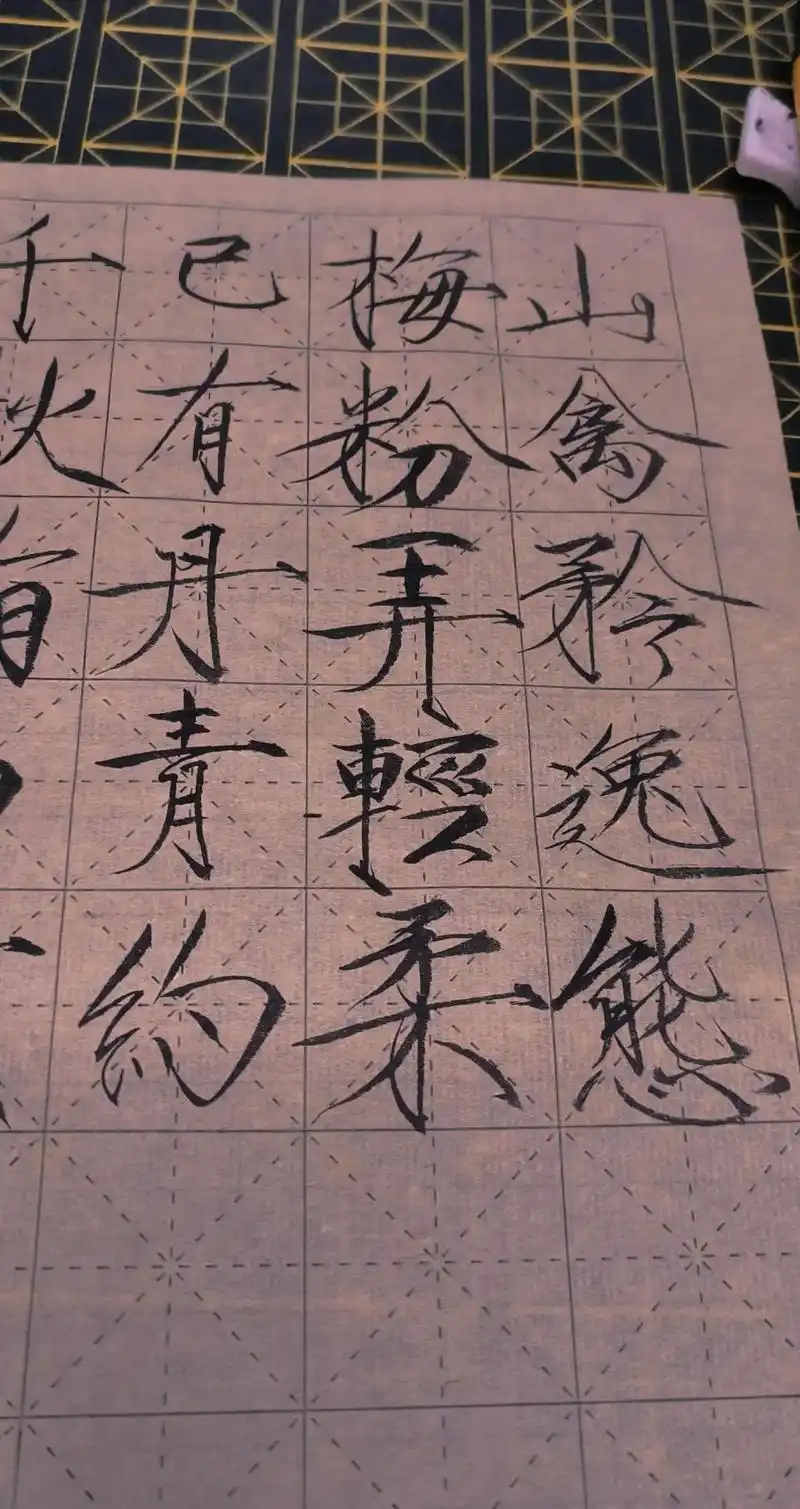 山禽矜逸態
梅粉弄輕柔
已有丹青約
千秋